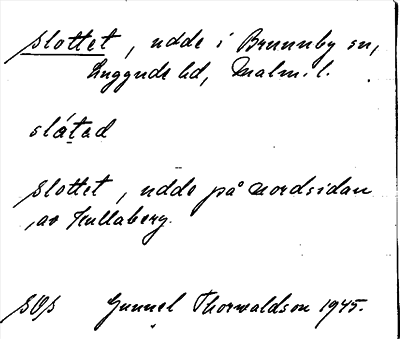 Slottet, udde i Brunnby sn,
Luggude hd, Malm. l.
slátəd
Slottet, udde på nordsidan
av Kullaberg.
SOS Gunnel Thorwaldson 1945.